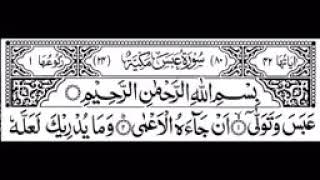 اٰيَاتُهَا ۴۲ (۸۰) سُوْرَةُ عَبَسَ مَكِّيَّةٌ (۲۴) رُكُوْعُهَا ۱
بِسْمِ اللّٰهِ الرَّحْمٰنِ الرَّحِيْمِ
عَبَسَ وَتَوَلّٰىۤ ۱ اَنْ جَآءَهُ الْاَعْمٰى ۲ وَمَا يُدْرِيْكَ لَعَلَّهٗ